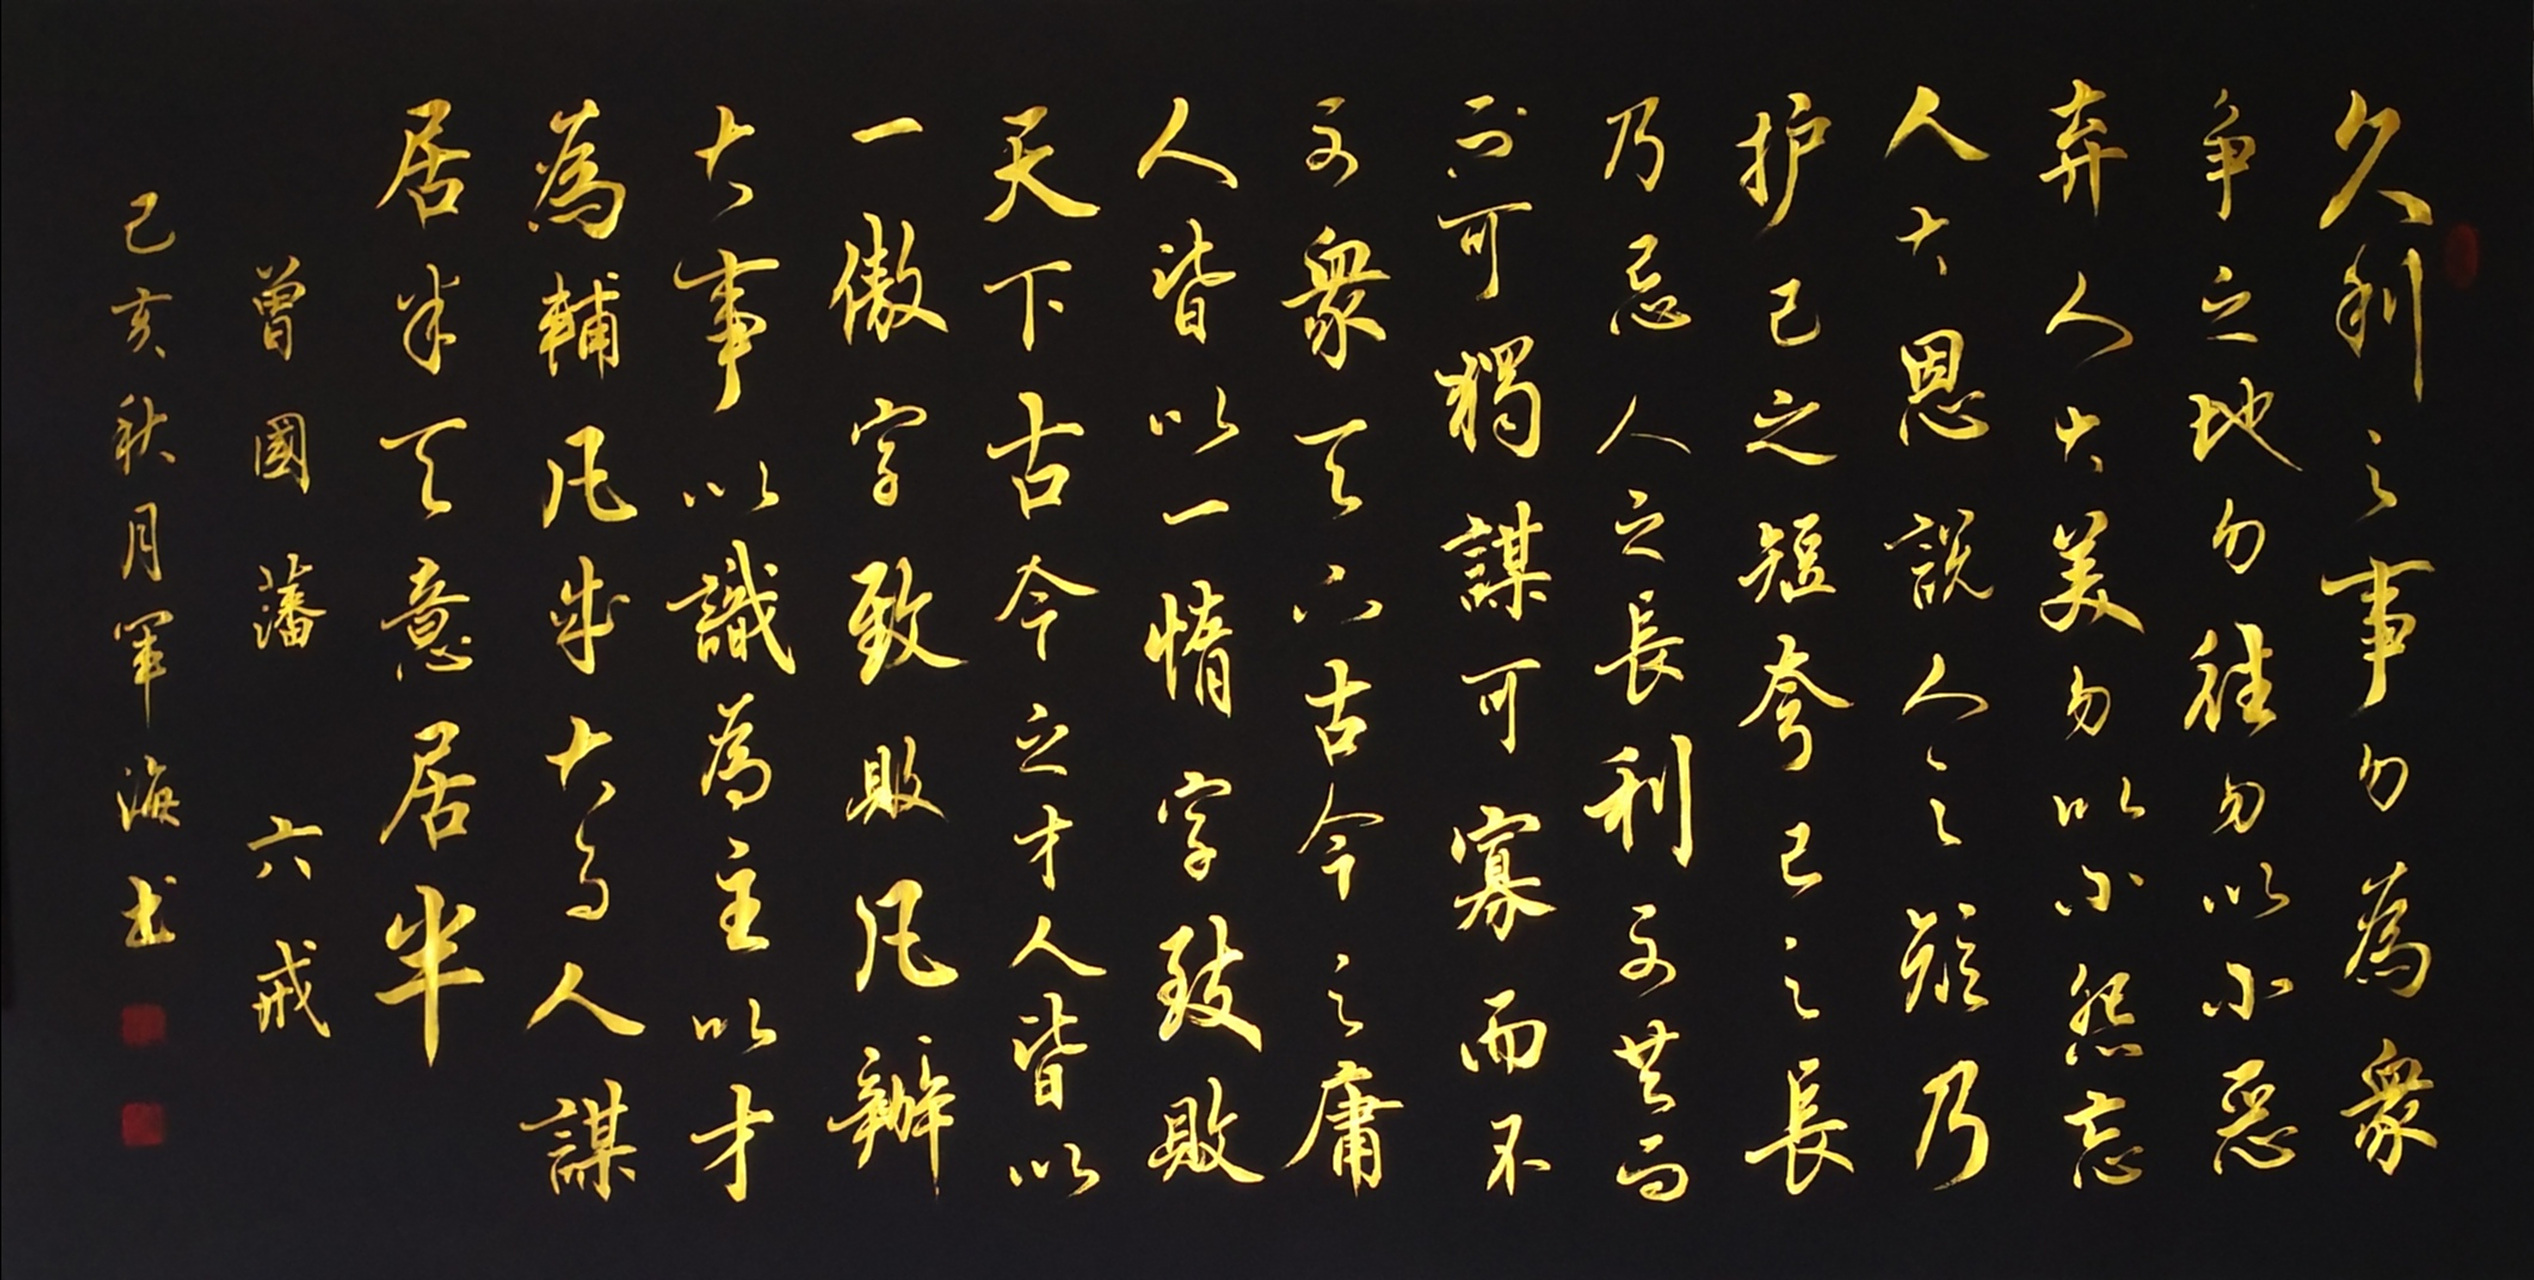 久利之事勿為衆
争之地勿往勿以小惡
弃人大美勿以小怨忘
人大恩說人之短乃
护己之短夸己之長
乃忌人之長利可共而
不可獨謀可寡而不
可衆天下古今之庸
人皆以一惰字致敗
天下古今之才人皆以
一傲字致敗凡辦
大事以識為主以才
為輔凡成大事人謀
居半天意居半
曾國藩 六戒
己亥秋月軍海书